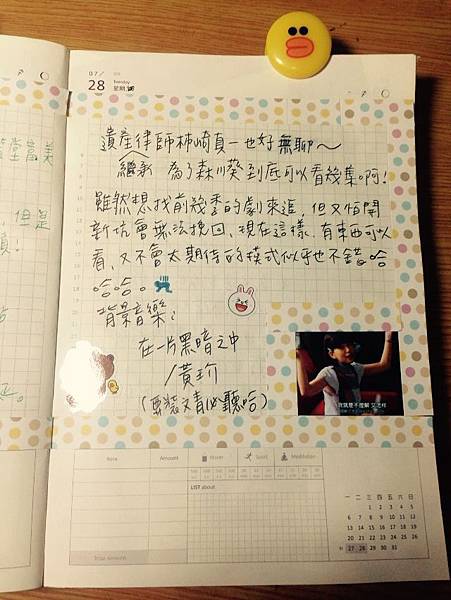 07/
28
Tuesday
星期二
遺產律師柿崎真一也好無聊~
繼承
為了森川葵到底可以看幾集啊!
雖然想找前幾季的劇來追,但又怕開
新坑會無法挽回,現在這樣,有東西可以
看,又不會太期待的模式似乎也不錯哈
哈哈。
背景音樂:
在一片黑暗之中
/黃玠
(要裝文青必聽哈)
我就是不理解 又怎樣
Item
Amount
Total Amount
Water
Sport
Meditation
LIST about
一 二 三 四 五 六 日
1 2 3 4 5
6 7 8 9 10 11 12
13 14 15 16 17 18 19
20 21 22 23 24 25 26
27 28 29 30 31
堂當美
但是
真!